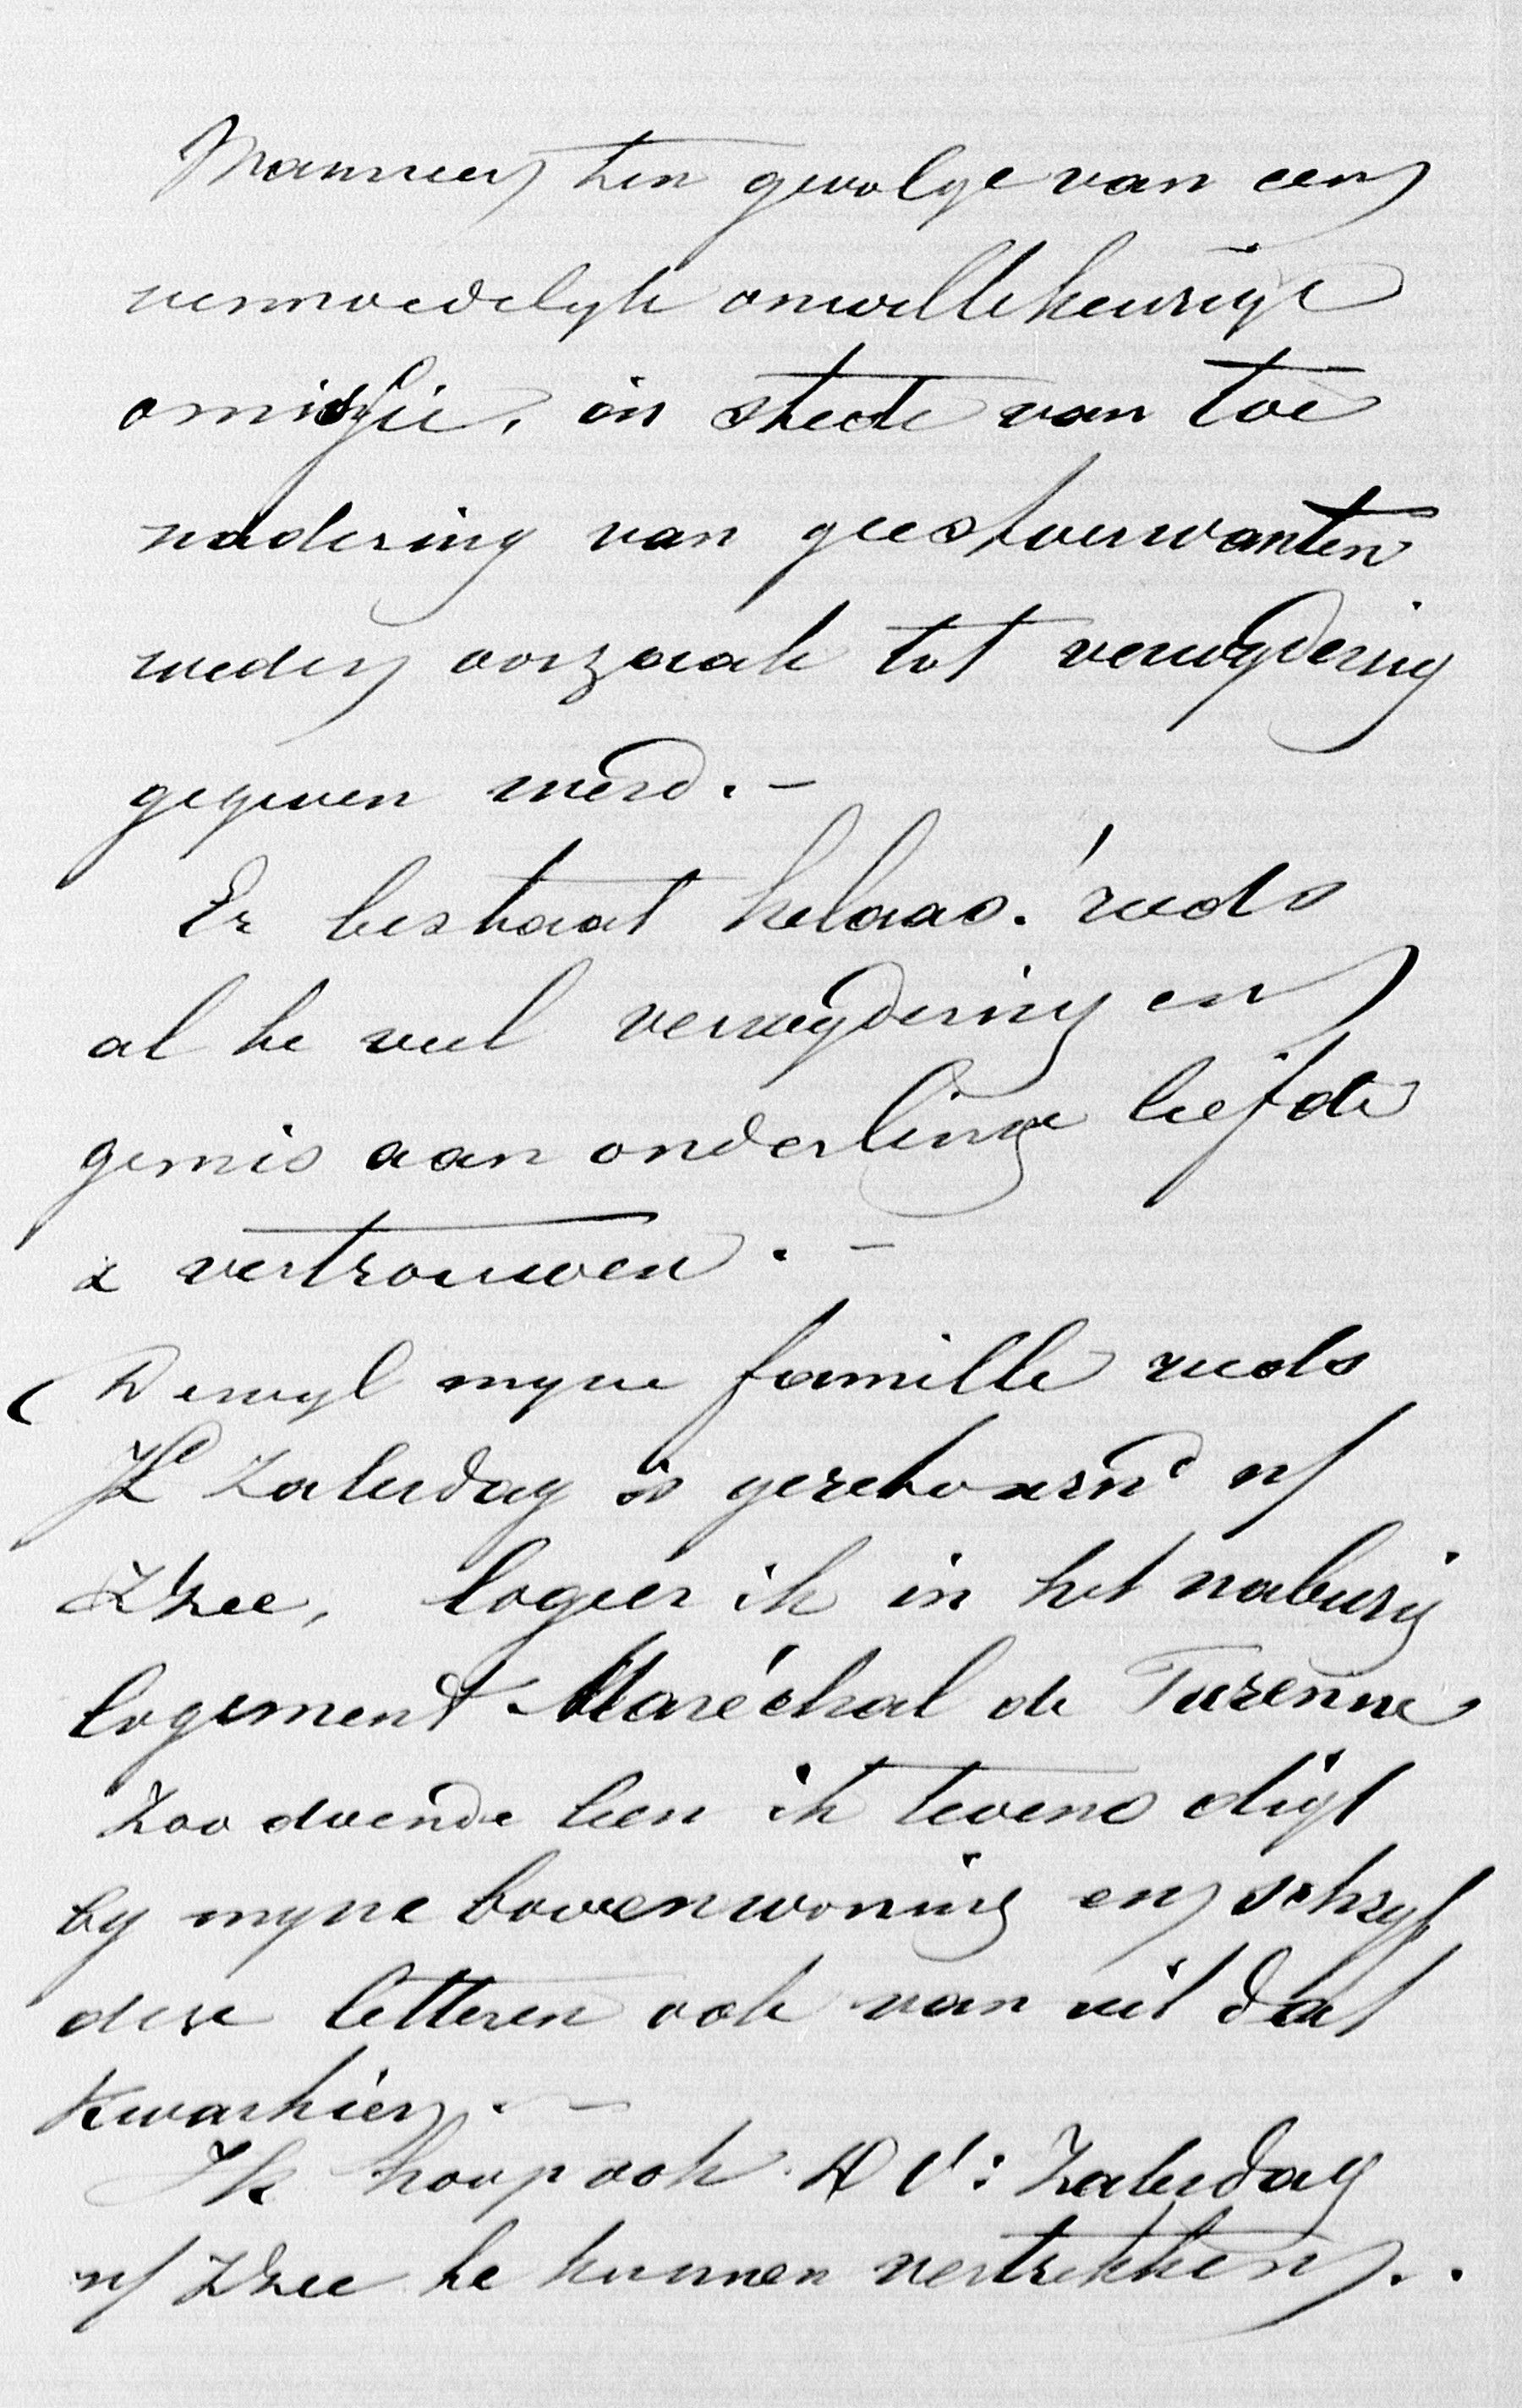 Wanneer ten gevolge van een
vermoedelyk onwillekeurige
omissie, in stede van toe
nadering van geestverwanten
weder oorzaak tot verwydering
gegeven werd. –
Er bestaat helaas! reeds
al te veel verwydering en
gemis aan onderlinge liefde
& vertrouwen. –
Dewyl myne famille reeds
Jl Zaturdag is geretourneerd n/
Zree, logeer ik in het naburig
logement Maréchal de Turenne
Zoo doende ben ik tevens digt
by myne bovenwoning en schryf
deze letteren ook van uit dat
Kwartier. –
Ik hoop ook D V: Zaturdag
n/ Zree te kunnen vertrekken..